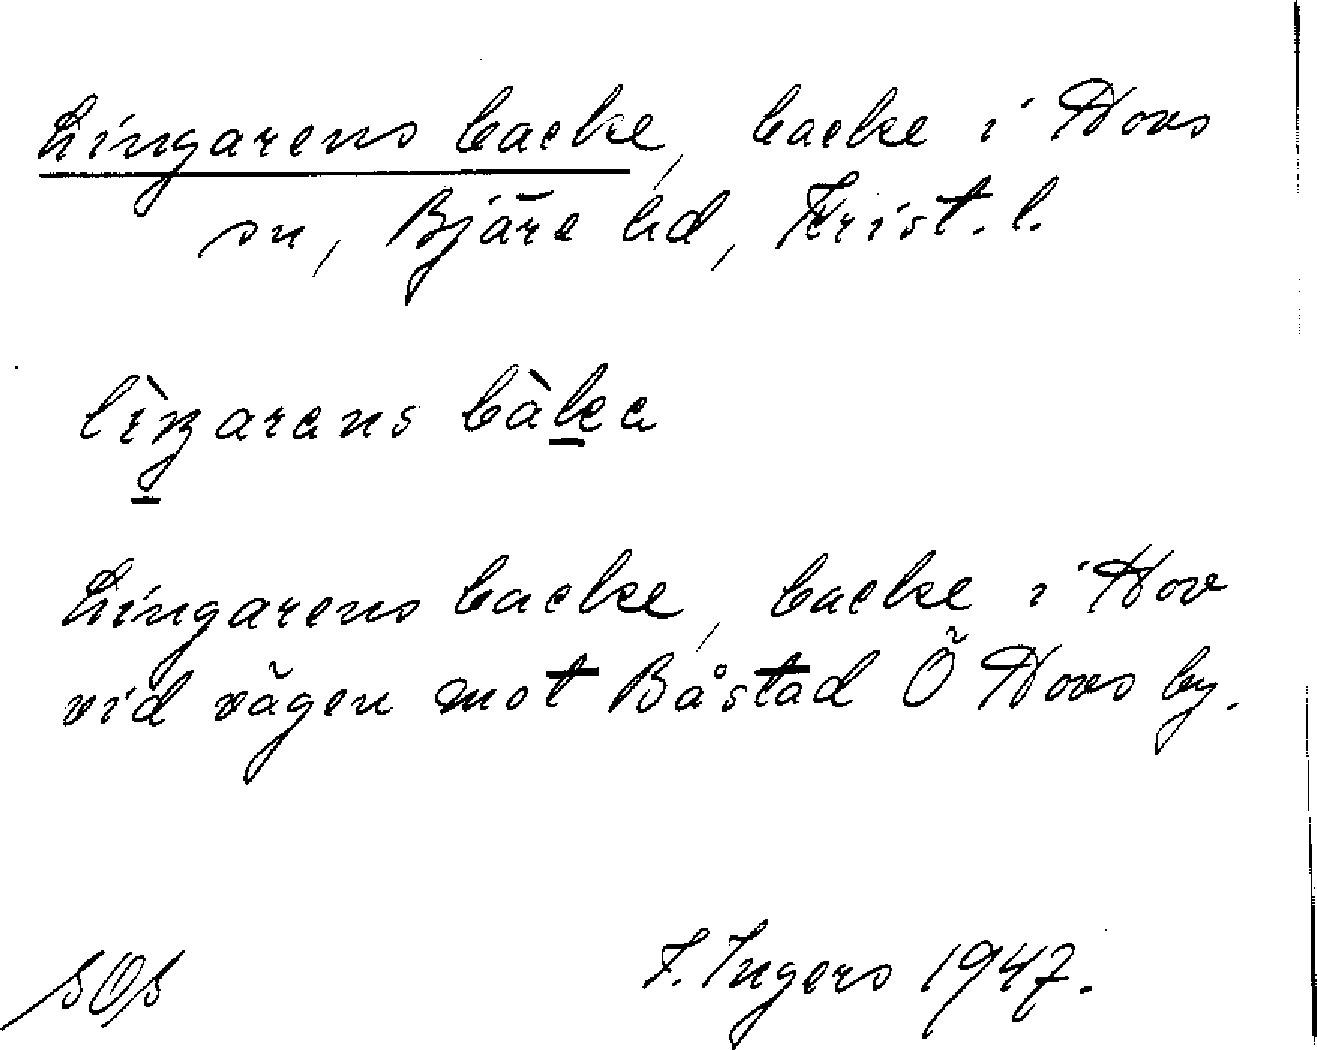 Lingarens backe, backe i Hovs
sn, Bjäre hd, Krist. l.
lìŋarens bàka
Lingarens backe, backe i Hov
vid vägen mot Båstad Ö Hovs by.
SOS
F. Ingers 1947.